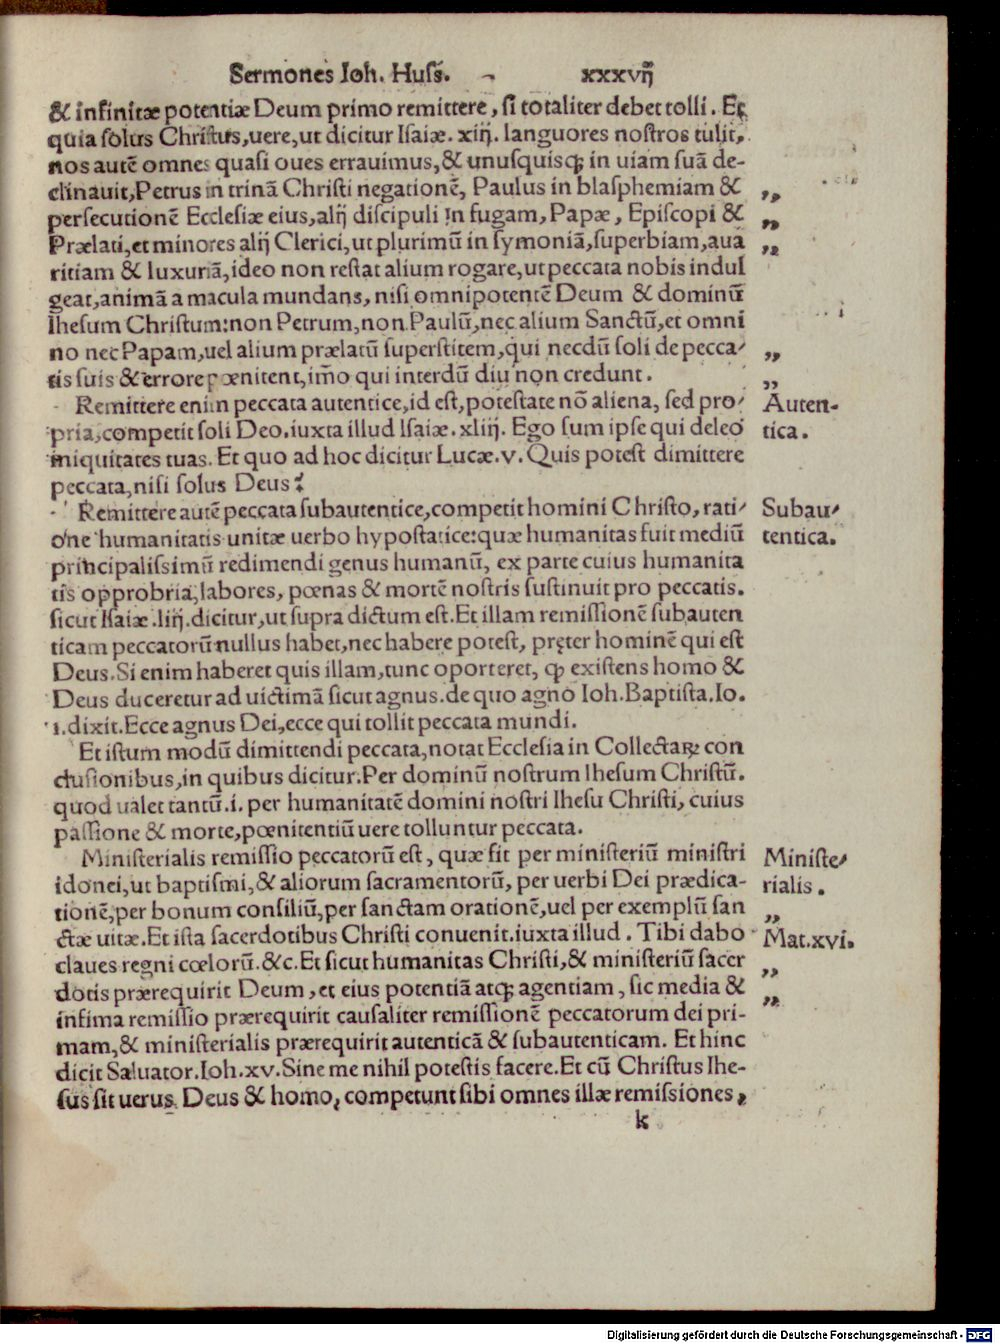 Sermones Ioh. Husſ. xxxvij
& infinitæ potentiæ Deum primo remittere, ſi totaliter debet tolli. Et
quia ſolus Chriſtus, uere, ut dicitur Iſaiæ. xiij. languores noſtros tulit,
nos autē omnes quaſi oues errauimus, & unuſquiſqꝫ in uiam ſuā de-
clinauit, Petrus in trinā Chriſti negationē, Paulus in blaſphemiam & „
perſecutionē Eccleſiæ eius, alij diſcipuli in fugam, Papæ, Epiſcopi & „
Prælati, et minores alij Clerici, ut plurimū in ſymoniā, ſuperbiam, aua „
ritiam & luxuriā, ideo non reſtat alium rogare, ut peccata nobis indul
geat, animā a macula mundans, niſi omnipotentē Deum & dominū
Iheſum Chriſtum: non Petrum, non Paulū, nec alium Sanctū, et omni
no nec Papam, uel alium prælatū ſuperſtitem, qui necdū ſoli de pecca- „
tis ſuis & errore pœnitent, im̄o qui interdū diu non credunt. „
Remittere enim peccata autentice, id eſt, poteſtate nō aliena, ſed pro- Auten-
pria, competit ſoli Deo. iuxta illud Iſaiæ. xliij. Ego ſum ipſe qui deleo tica.
iniquitates tuas. Et quo ad hoc dicitur Lucæ. v. Quis poteſt dimittere
peccata, niſi ſolus Deus?
Remittere autē peccata ſubautentice, competit homini Chriſto, rati- Subau-
one humanitatis unitæ uerbo hypoſtatice: quæ humanitas fuit mediū tentica.
principaliſſimū redimendi genus humanū, ex parte cuius humanita
tis opprobria, labores, pœnas & mortē noſtris ſuſtinuit pro peccatis.
ſicut Iſaiæ .liij. dicitur, ut ſupra dictum eſt. Et illam remiſſionē ſubauten
ticam peccatorū nullus habet, nec habere poteſt, pręter hominē qui eſt
Deus. Si enim haberet quis illam, tunc oporteret, ꝙ exiſtens homo &
Deus duceretur ad uictimā ſicut agnus. de quo agno Ioh. Baptiſta. Io.
1. dixit. Ecce agnus Dei, ecce qui tollit peccata mundi.
Et iſtum modū dimittendi peccata, notat Eccleſia in Collectaꝝ con
cluſionibus, in quibus dicitur. Per dominū noſtrum Iheſum Chriſtū.
quod ualet tantū .i. per humanitatē domini noſtri Iheſu Chriſti, cuius
paſſione & morte, pœnitentiū uere tolluntur peccata.
Miniſterialis remiſſio peccatorū eſt, quæ fit per miniſteriū miniſtri Miniſte-
idonei, ut baptiſmi, & aliorum ſacramentorū, per uerbi Dei prædica- rialis.
tionē, per bonum conſiliū, per ſanctam orationē, uel per exemplū ſan „
ctæ uitæ. Et iſta ſacerdotibus Chriſti conuenit. iuxta illud. Tibi dabo Mat.xvi.
claues regni cœlorū. &c. Et ſicut humanitas Chriſti, & miniſteriū ſacer „
dotis prærequirit Deum, et eius potentiā atqꝫ agentiam, ſic media & „
infima remiſſio prærequirit cauſaliter remiſſionē peccatorum dei pri-
mam, & miniſterialis prærequirit autenticā & ſubautenticam. Et hinc
dicit Saluator. Ioh. xv. Sine me nihil poteſtis facere. Et cū Chriſtus Ihe-
ſus ſit uerus Deus & homo, competunt ſibi omnes illæ remiſſiones,
k
Digitalisierung gefördert durch die Deutsche Forschungsgemeinschaft - DFG